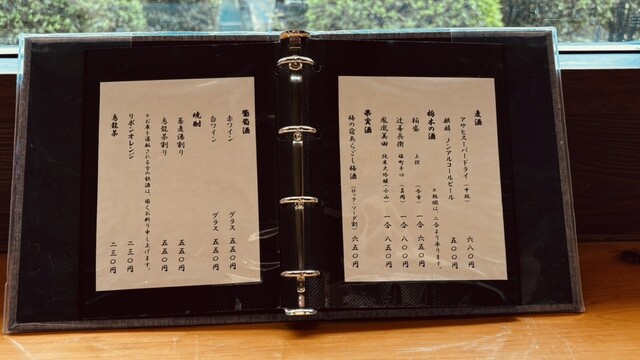 麦酒
アサヒスーパードライ（中瓶） 六八〇円
麒麟 ノンアルコールビール 五〇〇円
栃木の酒 ※熱燗は、二合より承ります。
松盛 上撰 一合 六五〇円
辻善兵衛 槽町辛口（真岡） 一合 八〇〇円
鳳凰美田 純米大吟醸（小山） 一合 八五〇円
果実酒
梅の宿あらごし梅酒（ロック・ソーダ割） 六五〇円
葡萄酒
赤ワイン グラス 五五〇円
白ワイン グラス 五五〇円
焼酎
蕎麦湯割り 五五〇円
烏龍茶割り 五五〇円
※お車を運転される方の飲酒は、固くお断り申し上げます。
リボンオレンジ 二三〇円
烏龍茶 二三〇円